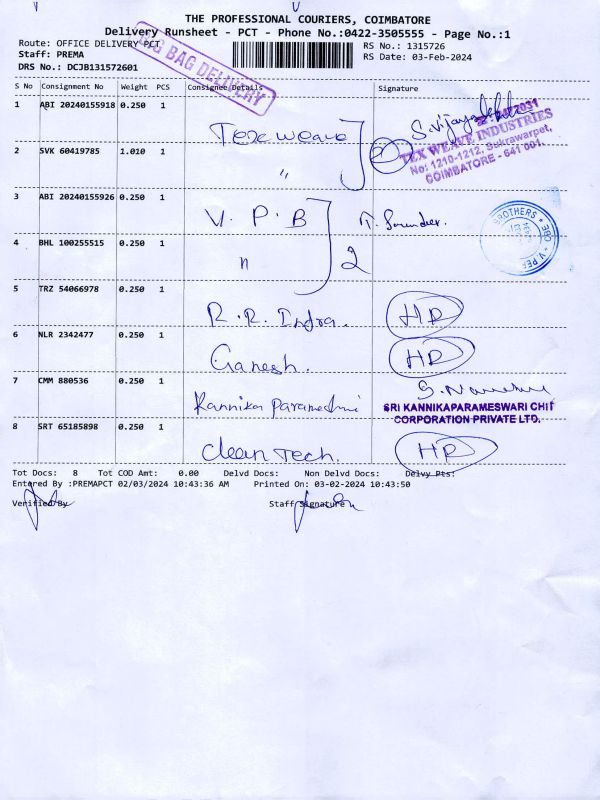 THE PROFESSIONAL COURIERS, COIMBATORE
Delivery Runsheet - PCT - Phone No.:0422-3505555 - Page No.:1
Route: OFFICE DELIVERY PCT
RS No.: 1315726
Staff: PREMA
RS Date: 03-Feb-2024
DRS No.: DCJB131572601
BIG BAG DELIVERY
S No Consignment No Weight PCS Consignee Details Signature
1 ABI 20240155918 0.250 1 Tex weave
S.Vijaya
TEX WEAVE INDUSTRIES
No: 1210-1212, Sukrawarpet,
COIMBATORE - 641 001.
2 SVK 60419785 1.010 1 "
2
3 ABI 20240155926 0.250 1 V. P. B
BROTHERS
4 BHL 100255515 0.250 1 n 2
5 TRZ 54066978 0.250 1 R.R. Infra. HR
6 NLR 2342477 0.250 1 Ganesh. HR
7 CMM 880536 0.250 1 Kannika
SRI KANNIKAPARAMESWARI CHIT
CORPORATION PRIVATE LTD.
8 SRT 65185898 0.250 1 Clean Tech. HR
Tot Docs: 8 Tot COD Amt: 0.00 Delvd Docs: Non Delvd Docs: Delvy Pts:
Entered By :PREMAPCT 02/03/2024 10:43:36 AM Printed On: 03-02-2024 10:43:50
Verified By Staff Signature